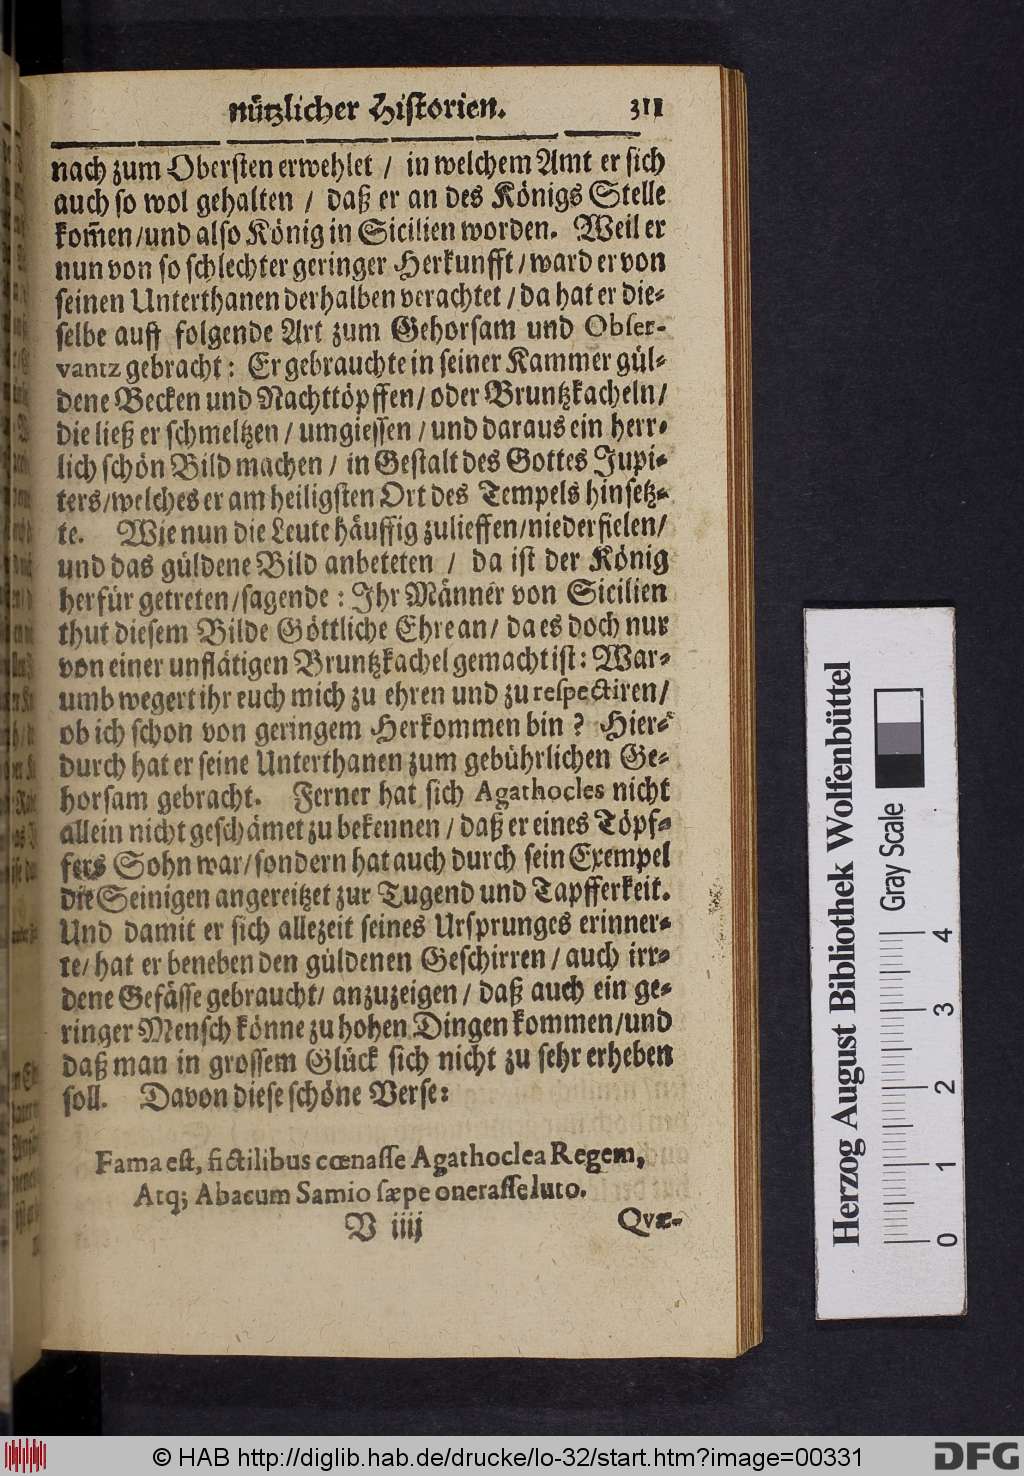 nützlicher Historien. 311
nach zum Obersten erwehlet / in welchem Amt er sich
auch so wol gehalten / daß er an des Königs Stelle
kom̃en/und also König in Sicilien worden. Weil er
nun von so schlechter geringer Herkunfft/ward er von
seinen Unterthanen derhalben verachtet/da hat er die-
selbe auff folgende Art zum Gehorsam und Obser-
vantz gebracht: Er gebrauchte in seiner Kammer gül-
dene Becken und Nachttöpffen/oder Bruntzkacheln/
die ließ er schmeltzen/umgiessen/und daraus ein herr-
lich schön Bild machen/in Gestalt des Gottes Jupi-
ters/welches er am heiligsten Ort des Tempels hinsetz-
te. Wie nun die Leute häuffig zulieffen/niederfielen/
und das güldene Bild anbeteten / da ist der König
herfür getreten/sagende: Ihr Männer von Sicilien
thut diesem Bilde Göttliche Ehre an/da es doch nur
von einer unflätigen Bruntzkachel gemacht ist: War-
umb wegert ihr euch mich zu ehren und zu respectiren/
ob ich schon von geringem Herkommen bin? Hier-
durch hat er seine Unterthanen zum gebührlichen Ge-
horsam gebracht. Ferner hat sich Agathocles nicht
allein nicht geschämet zu bekennen/daß er eines Töpf-
fers Sohn war/sondern hat auch durch sein Exempel
die Seinigen angereitzet zur Tugend und Tapfferkeit.
Und damit er sich allezeit seines Ursprunges erinner-
te/hat er beneben den güldenen Geschirren/auch irr-
dene Gefässe gebraucht/anzuzeigen/daß auch ein ge-
ringer Mensch könne zu hohen Dingen kommen/und
daß man in grossem Glück sich nicht zu sehr erheben
soll. Davon diese schöne Verse:
Fama est, fictilibus cœnasse Agathoclea Regem,
Atq; Abacum Samio sæpe onerasse luto.
V iiij Qvæ-
Herzog August Bibliothek Wolfenbüttel
Gray Scale
0 1 2 3 4
© HAB http://diglib.hab.de/drucke/lo-32/start.htm?image=00331
DFG